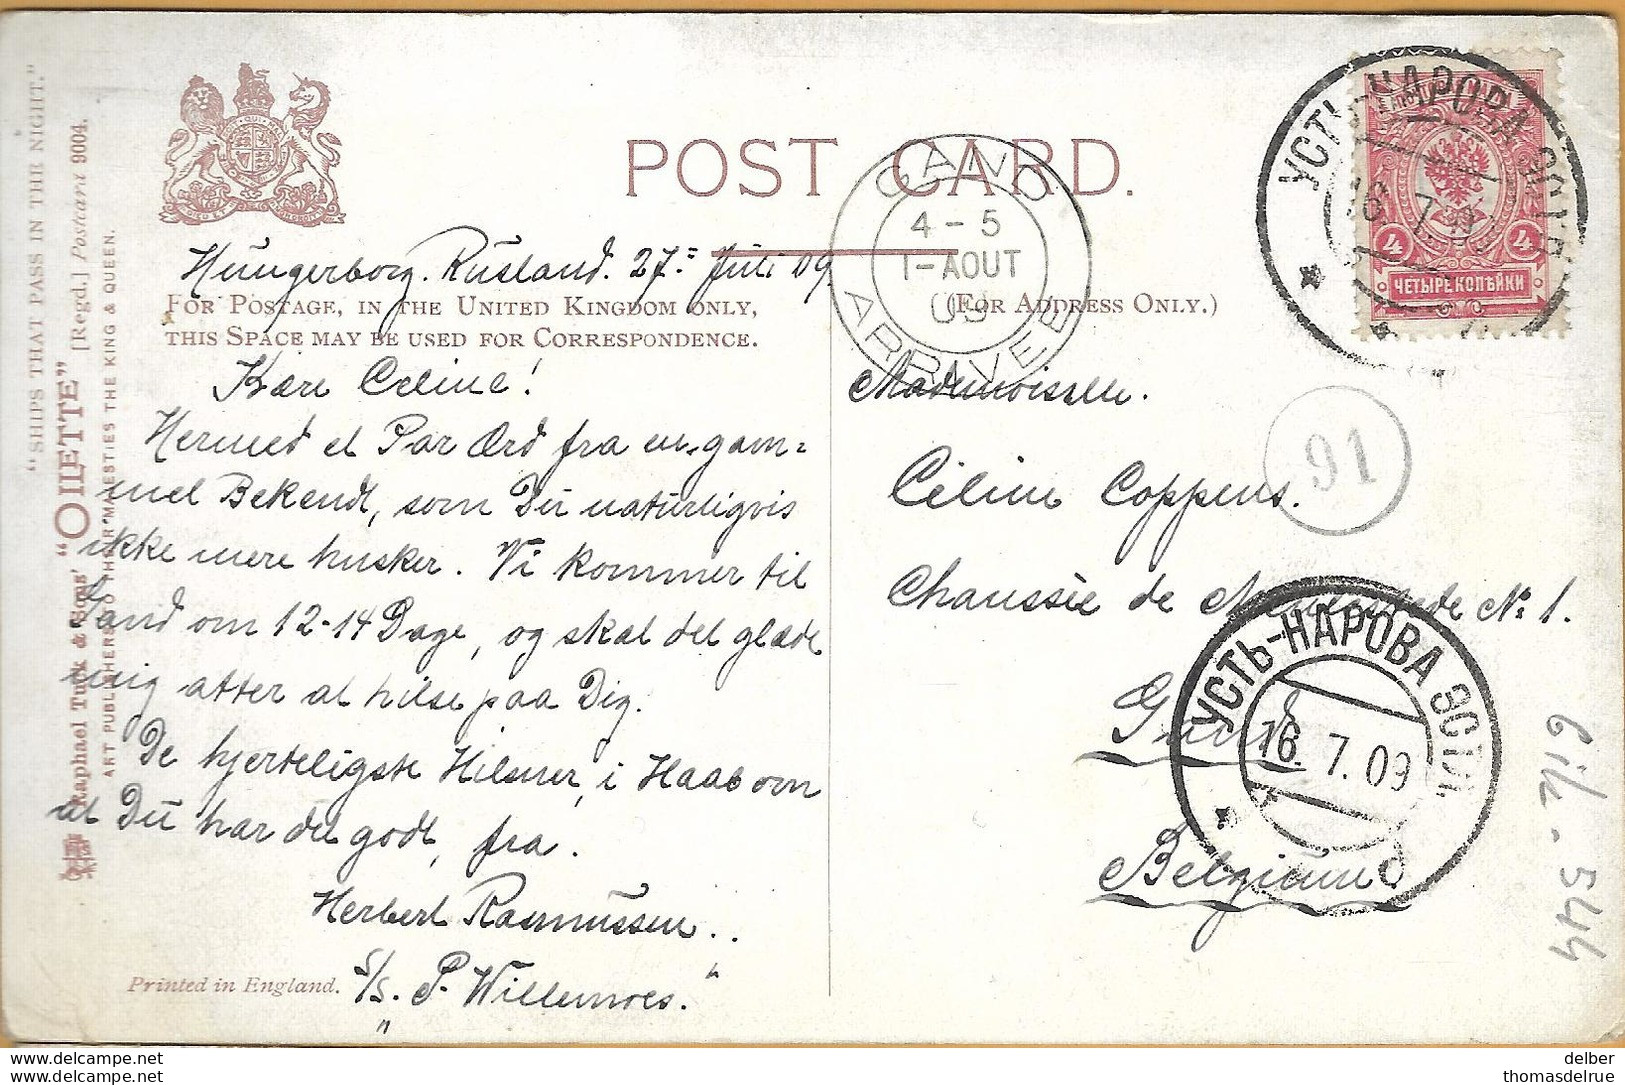 "SHIPS THAT PASS IN THE NIGHT."
Raphael Tuck & Sons' "OILETTE" [Regd.] Postcard 9004.
ART PUBLISHERS TO THEIR MAJESTIES THE KING & QUEEN.
POST CARD.
GAND
4-5
1-AOUT
09
ARRIVEE
УСТЬ-НАРОВА ЭСТЛ.
16.7.09
4 4
ЧЕТЫРЕ КОПѢЙКИ
Hungerborg. Rusland. 27= Juli 09.
FOR POSTAGE, IN THE UNITED KINGDOM ONLY,
THIS SPACE MAY BE USED FOR CORRESPONDENCE.
(FOR ADDRESS ONLY.)
Kære Celine!
Hermed et Par Ord fra en gam=
mel Bekendt, som Du naturligvis
ikke mere husker. Vi kommer til
Gand om 12-14 Dage, og skal det glæde
mig atter at hilse paa Dig.
De hjerteligste Hilsner, i Haab om
at Du har det godt, fra.
Herbert Rasmussen..
S/S. "P. Willemoes."
Printed in England.
Mademoiselle.
Céline Coppens.
Chaussée de Meulestede No 1.
Gand
Belgium
91
УСТЬ-НАРОВА ЭСТЛ.
16.7.09
delber
thomasdelrue